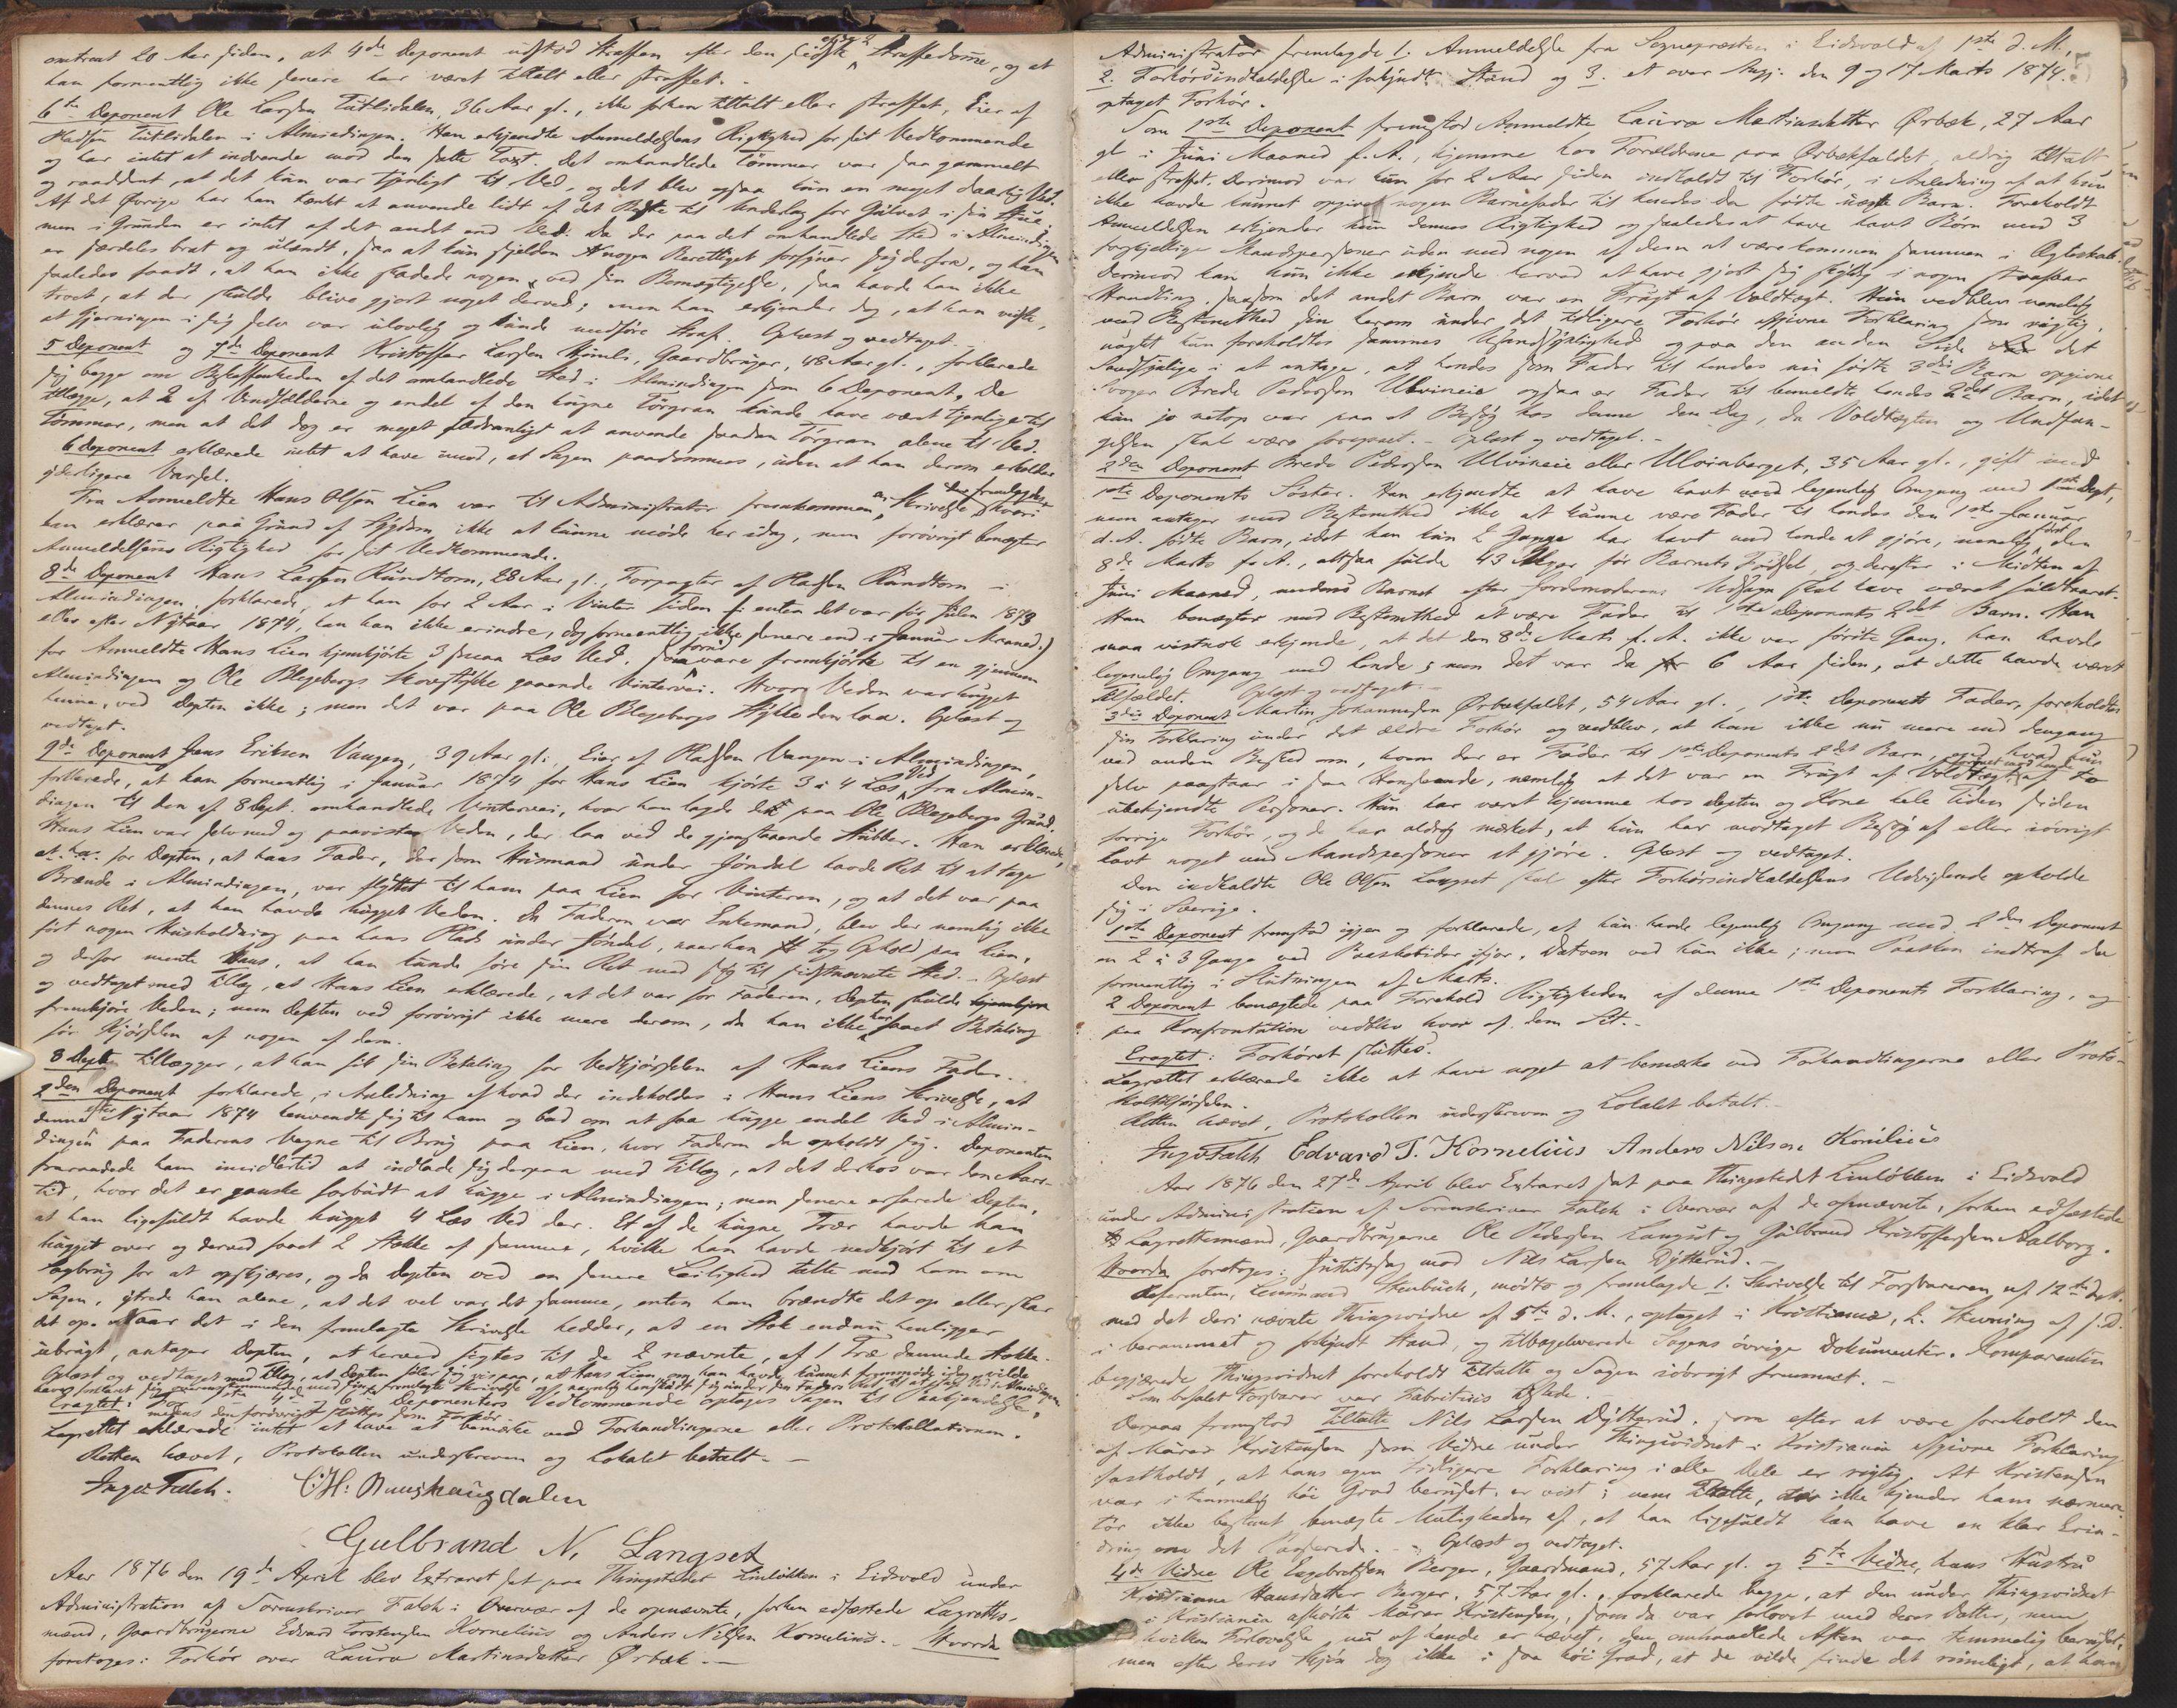 omtrent 20 Aar siden, at 4de Deponent udstod Straffen efter den sidste Straffedom, og at
han formentlig ikke senere har været tiltalt eller straffet. -
6te Deponent Ole Larsen Tutlidalen, 36 Aar gl., ikke forhen tiltalt eller straffet, Eier af
Pladsen Tutlidalen i Almindingen. Han erkjendte Anmeldelsens Rigtighed for sit Vedkommende
og har intet at indvende mod den satte Taxt. Det omhandlede Tømmer var saa gammelt
og raaddent, at det kun var tjenligt til Ved, og det blev ogsaa kun en meget daarlig Ved.
Af det Øvrige har han tænkt at anvende lidt af det Bedste til Underlag for Gulvet i sin Stue,
men i Grunden er intet af det andet end Ved. Da der paa det omhandlede Sted i Almindingen
er særdeles brat og ulændt, saa at kun sjelden nogen Berettiget forsyner sig derfra, og han
saaledes fandt, at han ikke skadede nogen ved sin Bemægtigelse, saa havde han ikke
troet, at der skulde blive gjort noget derved; men han erkjender dog, at han vidste,
at Gjerningen i sig selv var ulovlig og kunde medføre Straf. Oplæst og vedtaget. -
5 Deponent og 7de Deponent Kristoffer Larsen Hømli, Gaardbruger, 48 Aar gl., forklarede
sig begge om Beskaffenheden af det omhandlede Sted i Almindingen som 6 Deponent. De
tillagde, at 2 af Vindfælderne og endel af den hugne Tørgran kunde have været tjenlige til
Tømmer, men at det dog er meget sædvanligt at anvende saadan Tørgran alene til Ved.
6 Deponent erklærede intet at have imod, at Sagen paadømmes, uden at han derom erholder
yderligere Varsel.
Fra Anmeldte Hans Olsen Lien var til Administrator fremkommen en Skrivelse, der fremlagdes, hvori
han erklærer paa Grund af Sygdom ikke at kunne møde her idag, men forøvrigt benægter
Anmeldelsens Rigtighed for sit Vedkommende.
8de Deponent Hans Larsen Rundtom, 28 Aar gl., Forpagter af Pladsen Rundtom i
Almindingen, forklarede, at han for 2 Aar i Vinter siden (enten det var før Julen 1873
eller efter Nytaar 1874, kan han ikke erindre, dog formentlig ikke senere end i Januar Maaned.)
for Anmeldte Hans Lien hjemkjørte 3 smaa Læs Ved, som forud vare fremkjørte til en gjennem
Almindingen og Ole Blegebergs Skovstykke gaaende Vintervei. Hvor Veden var hugget
henne, ved Depten ikke; men det var paa Ole Blegebergs Stykke den laa. Oplæst og
vedtaget.
9de Deponent Jens Eriksen Vangen, 39 Aar gl., Eier af Pladsen Vangen i Almindingen,
forklarede, at han formentlig i Januar 1874 for Hans Lien kjørte 3 à 4 Læs Ved fra Almin-
dingen til den af 8 Dept. omhandlede Vintervei, hvor han lagde det paa Ole Blegebergs Grund.
Hans Lien var selv med og paaviste Veden, der laa ved de gjenstaaende Stubber. Han erklærede,
for Depten, at hans Fader, der som Husmand under Jøndal havde Ret til at tage
Brænde i Almindingen, var flyttet til ham paa Lien for Vinteren, og at det var paa
dennes Ret, at han havde hugget Veden. Da Faderen var Enkemand, blev der nemlig ikke
ført nogen Husholdning paa hans Plads under Jøndal, naar han tog Ophold paa Lien,
og derfor mente Hans, at han kunde føre sin Ret med sig til sidstnævnte Sted. - Oplæst
og vedtaget med Tillæg, at Hans Lien erklærede, at det var for Faderen, Depten skulde
fremkjøre Veden; men Depten ved forøvrigt ikke mere derom, da han ikke har faaet Betaling
for Kjørslen af nogen af dem.
8 Dept tillægger, at han fik sin Betaling for Vedkjørslen af Hans Liens Fader.
2den Deponent forklarede, i Anledning af hvad der indeholdes i Hans Liens Skrivelse, at
denne efter Nytaar 1874 henvendte sig til ham og bad om at faa hugge endel Ved i Almin-
dingen paa Faderens Vegne til Brug paa Lien, hvor Faderen da opholdt sig. Deponenten
fraraadede ham imidlertid at indlade sig derpaa med Tillæg, at det derhos var den Aars-
tid, hvor det er ganske forbudt at hugge i Almindingen; men senere erfarede Depten,
at han ligefuldt havde hugget 4 Læs Ved der. Et af de hugne Trær havde han
hugget over og derved faaet 2 Stokke af samme, hvilke han havde nedkjørt til et
Sagbrug for at opskjæres, og da Depten ved en senere Leilighed talte med ham om
Sagen, ytrede han alene, at det vel var det samme, enten han brændte det op eller skar
det op. Naar det i den fremlagte Skrivelse hedder, at en Stok endnu henligger
ubrugt, antager Depten, at herved sigtes til de 2 nævnte, af 1 Træ dannede Stokke.
Oplæst og vedtaget med Tillæg, at Depten føler sig vis paa, at Hans Lien, om han havde kunnet fremmøde idag, vilde
Eragtet: Deponenters Vedkommende optages Sagen til Paakjendelse,
medens den forøvrigt sluttes som Forhør.
Lagrettet erklærede intet at have at bemærke ved Forhandlingerne eller Protokollationen.
Retten hævet, Protokollen underskreven og Lokalet betalt. -
Inger Falch. C. H. Runshaugdalen
Gulbrand N. Langset
Aar 1876 den 19de April blev Extraret sat paa Thingstedet Linløkken i Eidsvold under
Administration af Sorenskriver Falch i Overvær af de opnævnte, forhen edfæstede Lagrettes-
mænd, Gaardbrugerne Edvard Torstensen Kornelius og Anders Nilsen Kornelius. - Hvorda
foretoges: Forhør over Laura Martinsdatter Ørbæk. -
Administrator fremlagde 1. Anmeldelse fra Sognepræsten i Eidsvold af 1ste d. M.,
2. Forhørsindkaldelse i forkyndt Stand og 3. et over den 9 og 17 Marts 1874
optaget Forhør.
Som 1ste Deponent fremstod Anmeldte Laura Martinsdatter Ørbæk, 27 Aar
gl. i Juni Maaned f. A., hjemme hos Forældrene paa Ørbækfaldet, aldrig tiltalt
eller straffet. Derimod var hun for 2 Aar siden indkaldt til Forhør, i Anledning af at hun
ikke havde kunnet opgive nogen Barnefader til hendes da fødte uægte Barn. Foreholdt
Anmeldelsen erkjender hun dennes Rigtighed og saaledes at have havt Børn med 3
forskjellige Mandspersoner uden med nogen af dem at være kommen sammen i Ægteskab.
Derimod kan hun ikke erkjende herved at have gjort sig skyldig i nogen strafbar
Handling, saasom det andet Barn var en Frugt af Voldtægt. Hun vedblev nemlig
med Bestemthed sin herom under det tidligere Forhør afgivne Forklaring som rigtig,
uagtet hun foreholdtes sammes Usandsynlighed og paa den anden Side det
Sandsynlige i at antage, at hendes som Fader til hendes nu fødte 3die Barn opgivne
Svoger Brede Pedersen Ulvineie ogsaa er Fader til bemeldte hendes 2det Barn, idet
hun jo netop var paa et Besøg hos denne den Dag, da Voldtægten og Undfan-
gelsen skal være foregaaet. - Oplæst og vedtaget. -
2den Deponent Brede Pedersen Ulvineie eller Ulvinberget, 35 Aar gl., gift med
1ste Deponents Søster. Han erkjendte at have havt legemlig Omgang med 1ste Dept,
men antager med Bestemthed ikke at kunne være Fader til hendes den 1ste Januar
d. A. fødte Barn, idet han kun 2 Gange har havt med hende at gjøre, nemlig først den
8de Marts f. A., altsaa fulde 43 Uger før Barnets Fødsel, og derefter i Midten af
Juni Maaned, medens Barnet efter Jordemoderens Udsagn skal have været fuldbaaret.
Han benægter med Bestemthed at være Fader til 1ste Deponents 2det Barn. Han
maa vistnok erkjende, at det den 8de Marts f. A. ikke var første Gang, han havde
legemlig Omgang med hende; men det var da 6 Aar siden, at dette havde været
Tilfældet. Oplæst og vedtaget. -
3die Deponent Martin Johannesen Ørbækfaldet, 54 Aar gl. 1ste Deponents Fader, foreholdtes
sin Forklaring under det ældre Forhør og vedblev, at han ikke nu mere end dengang
ved anden Besked om, hvem der er Fader til 1ste Deponents 2det Barn, end hvad hun
selv paastaar i saa Henseende, nemlig at det var en Frugt af Voldtægt af to
ubekjendte Personer. Hun har været hjemme hos Depten og Kone hele Tiden siden
forrige Forhør, og de har aldrig mærket, at hun har modtaget Besøg af eller iøvrigt
havt noget med Mandspersoner at gjøre. Oplæst og vedtaget.
Den indkaldte Ole Olsen Langset skal efter Forhørsindkaldelsens Udvisende opholde
sig i Sverige.
1ste Deponent fremstod igjen og forklarede, at hun havde legemlig Omgang med 2den Deponent
en 2 à 3 Gange ved Paasketider ifjor. Datoen ved hun ikke; men Paasken indtraf da
formentlig i Slutningen af Marts.
2 Deponent benægtede paa Forehold Rigtigheden af denne 1ste Deponents Forklaring, og
paa Konfrontation vedblev hver af dem Sit. -
Eragtet: Forhøret sluttes.
Lagrettet erklærede ikke at have noget at bemærke ved Forhandlingerne eller Proto-
koltilførslen.
Retten hævet, Protokollen underskreven og Lokalet betalt. -
Inger Falch Edvard T. Kornelius Anders Nilsen Kornilius
Aar 1876 den 27de April blev Extraret sat paa Thingstedet Linløkken i Eidsvold
under Administration af Sorenskriver Falch i Overvær af de opnævnte, forhen edfæstede
Lagrettesmænd, Gaardbrugerne Ole Pedersen Langset og Gulbrand Kristoffersen Aalborg.
Hvorda foretoges: Justitssag mod Nils Larsen Dytterud. -
Referenten, Lensmand Stenbuck, mødte og fremlagde 1. Skrivelse til Forsvareren af 12te d. M.
med det deri nævnte Thingsvidne af 5te d. M., optaget i Kristiania, 2. Stevning af s. D.
i berammet og forkyndt Stand, og tilbageleverede Sagens øvrige Dokumenter. Komparenten
begjærede Thingsvidnet foreholdt Tiltalte og Sagen iøvrigt fremmet. -
Som befalet Forsvarer var Fabritius tilstede. -
Derpaa fremstod Tiltalte Nils Larsen Dytterud, som efter at være foreholdt den
af Maren Kristensen som Vidne under Thingsvidnet i Kristiania afgivne Forklaring
fastholdt, at hans egen tidligere Forklaring i alle Dele er rigtig. At Kristensen
var i temmelig høi Grad beruset, er vist; men Tiltalte, der ikke kjender ham nærmere,
tør ikke bestemt benægte Muligheden af, at han ligefuldt kan have en klar Erin-
dring om det Passerede. - Oplæst og vedtaget.
4de Vidne Ole Engebretsen Berger, Gaardmand, 57 Aar gl. og 5te Vidne, hans Hustru
Kristianne Hansdatter Berger, 57 Aar gl., forklarede begge, at den under Thingsvidnet
i Kristiania afhørte Maren Kristensen, som da var forlovet med deres Datter, men
hvilken Forlovelse nu af hende er hævet, den omhandlede Aften var temmelig beruset,
men efter deres Skjøn dog ikke i saa høi Grad, at de vilde finde det rimeligt, at han